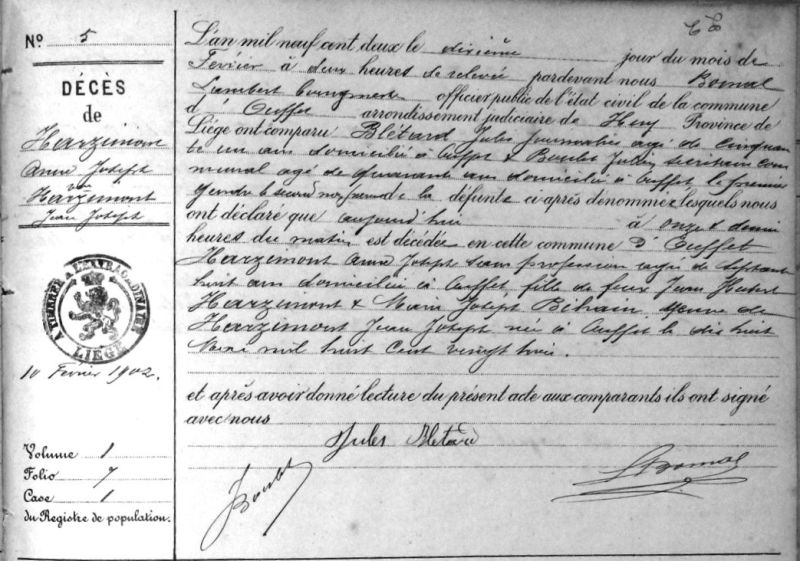 Nº 5
DÉCÈS
de
Harzimont
Anne Joseph
Vve
Harzimont
Jean Joseph
LIÈGE
10 Février 1902.
Volume 1
Folio 7
Case 1
du Registre de population.
L'an mil neuf cent deux le dixième jour du mois de
Février à deux heures de relevée pardevant nous Bomal
Lambert officier public de l'état civil de la commune
d'Ouffet arrondissement judiciaire de Huy Province de
Liége ont comparu Blétard Jules Journalier agé de cinquan
te un ans domicilié à Ouffet & Boulet Julien secrétaire com
munal agé de quarante ans domicilié à Ouffet le premier
gendre le second de la défunte ci-après dénommée, lesquels nous
ont déclaré que aujourd'hui à onze & demie
heures du matin est décédée en cette commune d'Ouffet
Harzimont Anne Joseph sans profession agée de septante
huit ans domiciliée à Ouffet, fille de feux Jean Hubert
Harzimont & Marie Joseph Bihain veuve de
Harzimont Jean Joseph née à Ouffet le dix huit
mil huit cent vingt trois.
et après avoir donné lecture du présent acte aux comparants ils ont signé
avec nous
Jules Bletard
JBoulet
LBomal